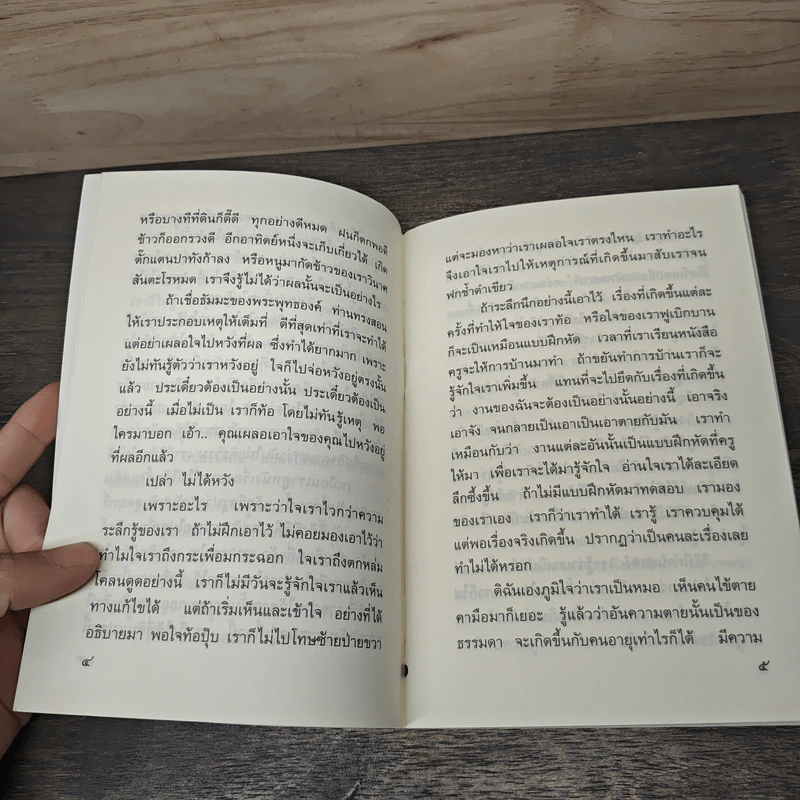 หรือบางทีที่ดินก็ดี๊ดี ทุกอย่างดีหมด ฝนก็ตกพอดี
ข้าวก็ออกรวงดี อีกอาทิตย์หนึ่งจะเก็บเกี่ยวได้ เกิด
ตั๊กแตนปาทังก้าลง หรือหนูมากัดข้าวของเราวินาศ
สันตะโรหมด เราจึงรู้ไม่ได้ว่าผลนั้นจะเป็นอย่างไร
ถ้าเชื่อธัมมะของพระพุทธองค์ ท่านทรงสอน
ให้เราประกอบเหตุให้เต็มที่ ดีที่สุดเท่าที่เราจะทำได้
แต่อย่าเผลอใจไปหวังที่ผล ซึ่งทำได้ยากมาก เพราะ
ยังไม่ทันรู้ตัวว่าเราหวังอยู่ ใจก็ไปจ่อหวังอยู่ตรงนั้น
แล้ว ประเดี๋ยวต้องเป็นอย่างนั้น ประเดี๋ยวต้องเป็น
อย่างนี้ เมื่อไม่เป็น เราก็ท้อ โดยไม่ทันรู้เหตุ พอ
ใครมาบอก เอ้า.. คุณเผลอเอาใจของคุณไปหวังอยู่
ที่ผลอีกแล้ว
เปล่า ไม่ได้หวัง
เพราะอะไร เพราะว่าใจเราไวกว่าความ
ระลึกรู้ของเรา ถ้าไม่ฝึกเอาไว้ ไม่คอยมองเอาไว้ว่า
ทำไมใจเราถึงกระเพื่อมกระฉอก ใจเราถึงตกหลุม
โคลนดูดอย่างนี้ เราก็ไม่มีวันจะรู้จักใจเราแล้วเห็น
ทางแก้ไขได้ แต่ถ้าเริ่มเห็นและเข้าใจ อย่างที่ได้
อธิบายมา พอใจท้อปุ๊บ เราก็ไม่ไปโทษซ้ายป่ายขวา
๔
แต่จะมองหาว่าเราเผลอใจเราตรงไหน เราทำอะไร
จึงเอาใจเราไปให้เหตุการณ์ที่เกิดขึ้นมาสับเราจน
ฟกช้ำดำเขียว
ถ้าระลึกนึกอย่างนี้เอาไว้ เรื่องที่เกิดขึ้นแต่ละ
ครั้งที่ทำให้ใจของเราท้อ หรือใจของเราฟูเบิกบาน
ก็จะเป็นเหมือนแบบฝึกหัด เวลาที่เราเรียนหนังสือ
ครูจะให้การบ้านมาทำ ถ้าขยันทำการบ้านเราก็จะ
รู้จักใจเราเพิ่มขึ้น แทนที่จะไปยึดกับเรื่องที่เกิดขึ้น
ว่า งานของฉันจะต้องเป็นอย่างนั้นอย่างนี้ เอาจริง
เอาจัง จนกลายเป็นเอาเป็นเอาตายกับมัน เราทำ
เหมือนกับว่า งานแต่ละอันนั้นเป็นแบบฝึกหัดที่ครู
ให้มา เพื่อเราจะได้มารู้จักใจ อ่านใจเราได้ละเอียด
ลึกซึ้งขึ้น ถ้าไม่มีแบบฝึกหัดมาทดสอบ เรามอง
ของเราเอง เราก็ว่าเราทำได้ เรารู้ เราควบคุมได้
แต่พอเรื่องจริงเกิดขึ้น ปรากฏว่าเป็นคนละเรื่องเลย
ทำไม่ได้หรอก
ดิฉันเองภูมิใจว่าเราเป็นหมอ เห็นคนไข้ตาย
คามือมาก็เยอะ รู้แล้วว่าอันความตายนั้นเป็นของ
ธรรมดา จะเกิดขึ้นกับคนอายุเท่าไรก็ได้ มีความ
๕